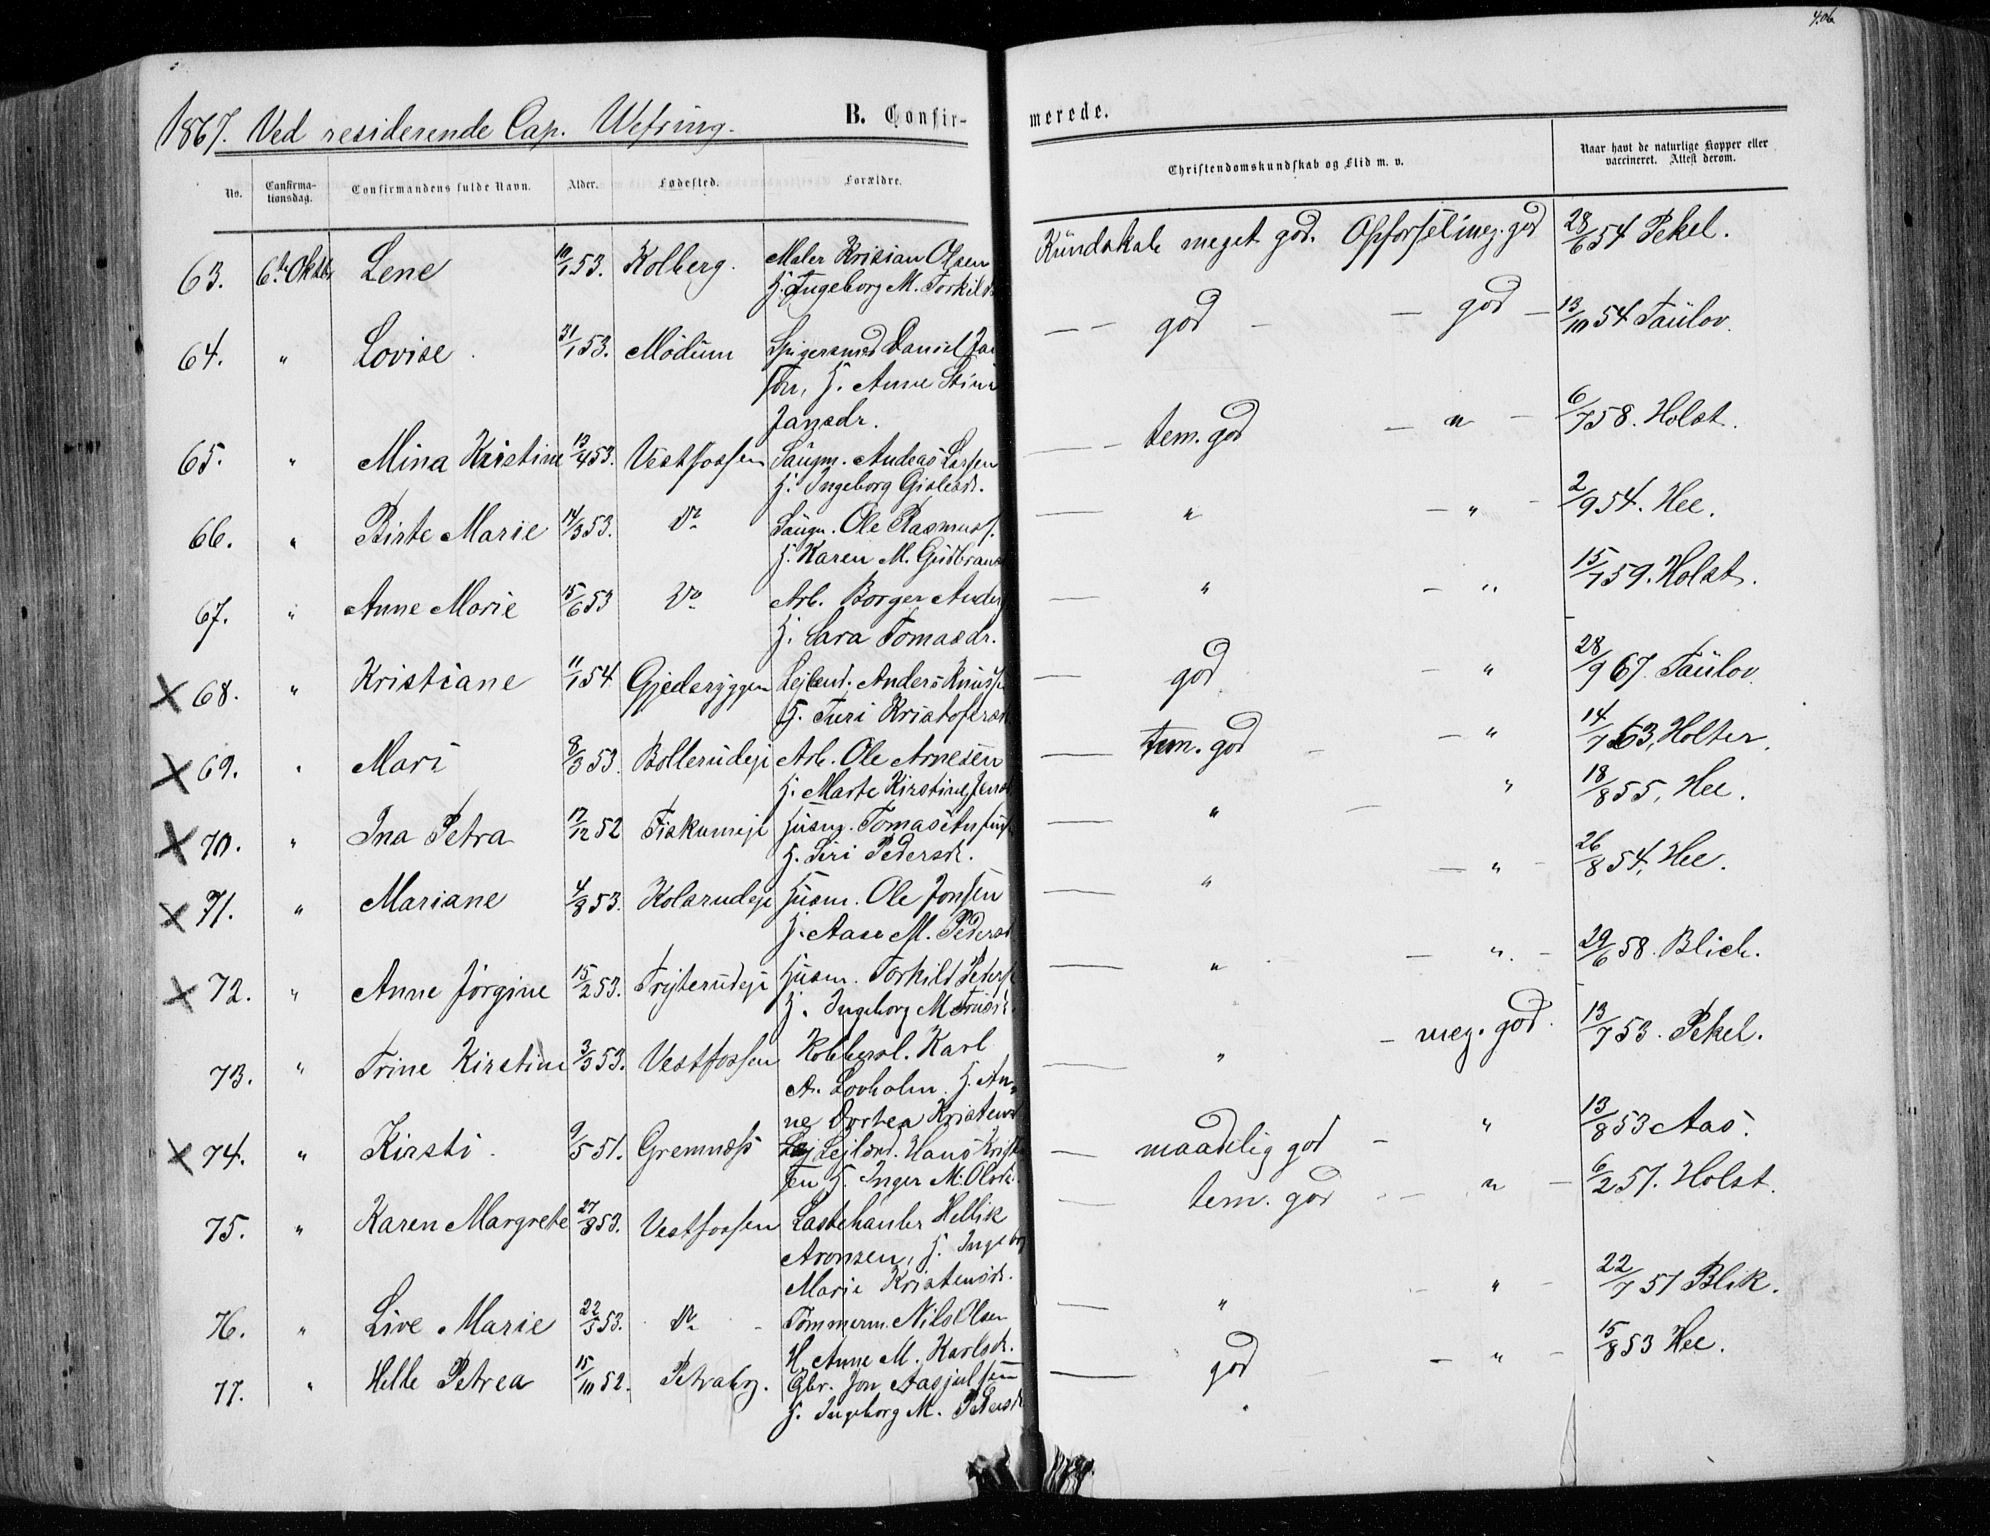 406
1867. Ved residerende Cap. Wefring.
B. Confir-
merede.
No. Confirma-tionsdag. Confirmandens fulde Navn. Alder. Fødested. Forældre. Christendomskundskab og Flid m. v. Naar havt de naturlige Kopper eller vaccineret. Attest derom.
63. 6te Oktbr Lene 10/1 53. Kolberg. Maler Kristian Olsen Kundskab meget god. Opførsel meg. god 28/6 54 Pekel.
H. Ingeborg M. Torkilds
64. " Lovise 31/1 53. Modum Spigersmed Daniel — — god — — god — 13/10 54 Taulov.
H. Anne
Jansdr.
65. " Mina Kristine 13/4 53. Vestfossen Saugm. Andeas Larsen — — tem. god — " — 6/7 58. Holst.
H. Ingeborg Gislesdr.
66. " Birte Marie 14/3 53. Do Saugm. Ole Rasmuss. — " — " — 2/9 54. Hee.
H. Karen M. Gudbrands
67. " Anne Marie 15/6 53 Do Arb. Borger Anders — " — " 15/7 59. Holst.
H. Sara Tomasdr.
X 68. " Kristiane 11/1 54 Gjederyggen Lejlend. Anders Knuss — god — " 28/9 67. Taulov.
H. Turi Kristofersd
X 69. " Mari 8/3 53. Bollerudeje Arb. Ole Arnesen — tem. god — — " 14/7 63, Holter.
H. Marte Kirstine Jensd
X 70. " Ina Petra 17/12 52 Fiskumeje Husm. Tomas — " — " 18/8 55, Hee.
H. Siri Pedersdr.
X 71. " Mariane 4/8 53. Kolsrudeje Husm. Ole Jonsen — " — " — 26/8 54, Hee.
H. Aase M. Pedersd
X 72. " Anne Jørgine 15/2 53. Frijterudeje Husm. Torkild Peders — " — " — 29/6 58. Blich.
H. Ingeborg M.
73. " Trine Kirstine 3/3 53. Vestfossen Karl — " — meg. god. 13/7 53. Pekel.
A. Lovholm. H. An-
ne Dortea Kristensd
X 74. " Kirsti 9/5 51. Gremnæss Lejlænd. Hans Krist — maadelig god — " 13/8 53 Aas.
sen H. Inger M. Olsdr.
75. " Karen Margrete 27/8 53. Vestfossen Hellik — tem. god — — " — 6/2 57. Holst.
Aronsen, H. Ingeborg
Marie Kristensdr.
76. " Live Marie 22/5 53. Do — Tømmerm. Nils Olsen — " — " — 22/7 57 Blik.
H. Anne M. Karlsdr.
77. " Helle Petrea 15/10 52. Petrabrg. Gbr. Jon Aasjulsen — god — — " — 15/8 53 Hee.
H. Ingeborg M. Petersd